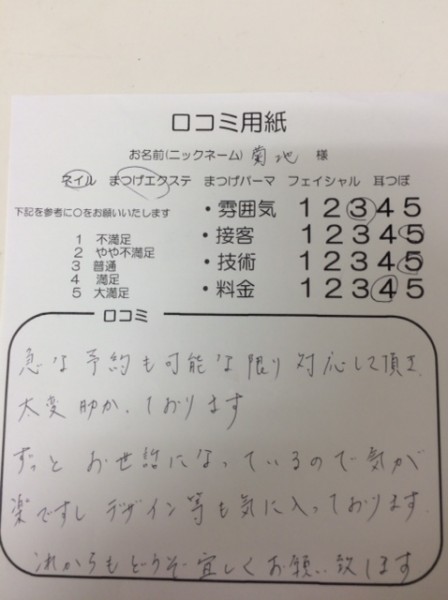 口コミ用紙
お名前(ニックネーム) 菊地 様
ネイル まつげエクステ まつげパーマ フェイシャル 耳つぼ
下記を参考に○をお願いいたします
1 不満足
2 やや不満足
3 普通
4 満足
5 大満足
・雰囲気 1 2 3 4 5
・接客 1 2 3 4 5
・技術 1 2 3 4 5
・料金 1 2 3 4 5
口コミ
急な予約も可能な限り対応して頂き、
大変助かっております
ずっとお世話になっているので気が
楽ですしデザイン等も気に入っております。
これからもどうぞ宜しくお願い致します